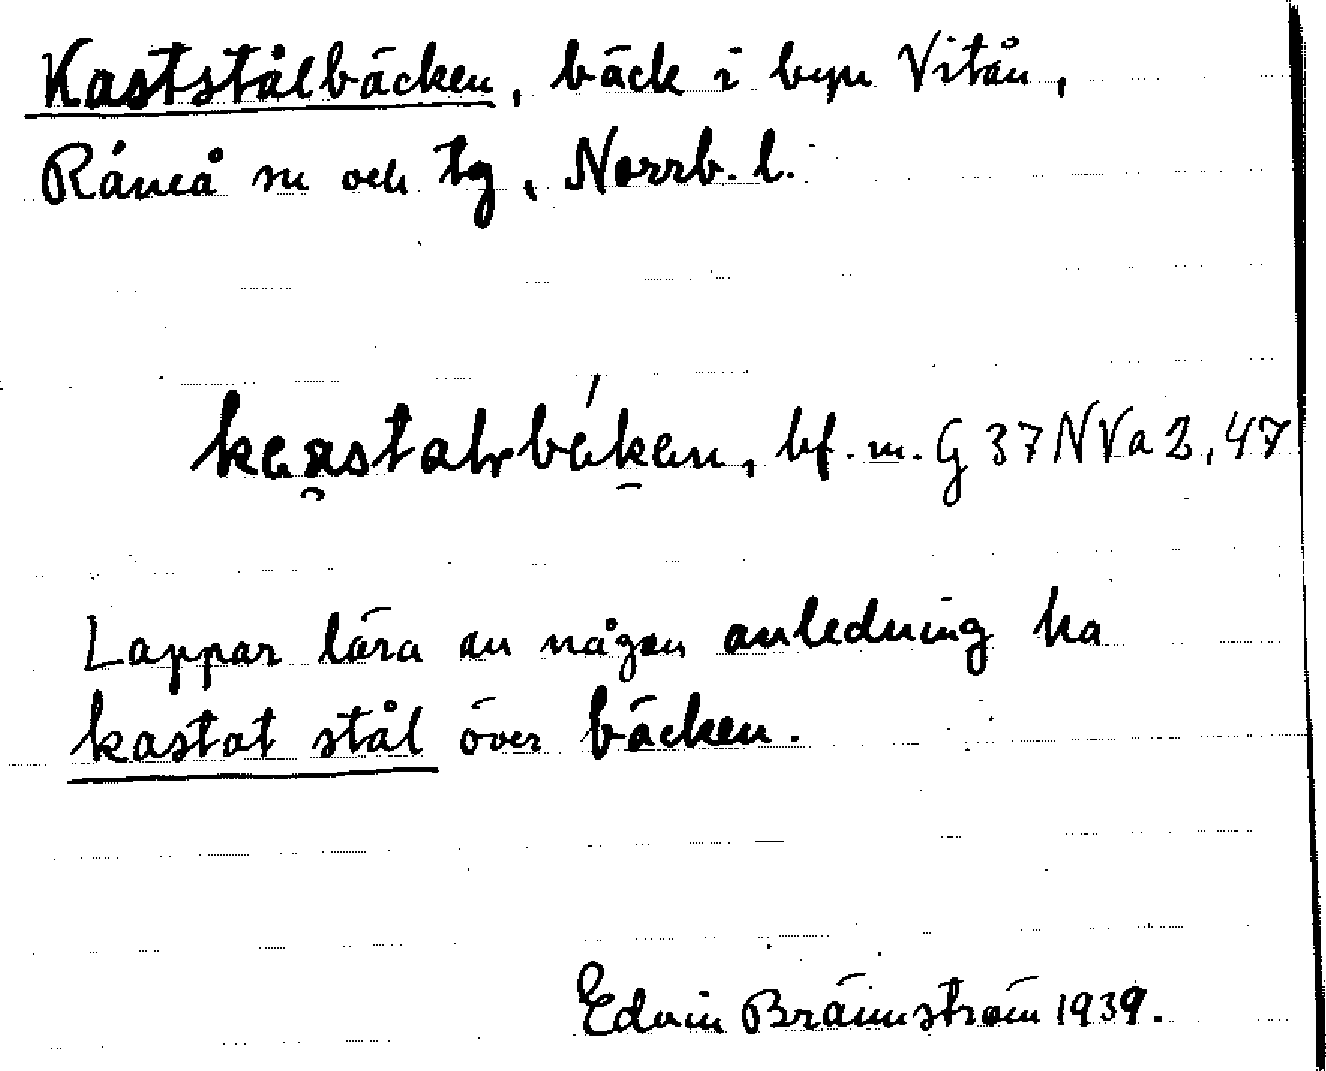 Kaststålbäcken, bäck i byn Vitån,
Råneå sn och tg, Norrb. l.
bf. m. G 37 N Va 2, 47
Lappar lära av någon anledning ha
kastat stål över bäcken.
Edvin Brännström 1939.